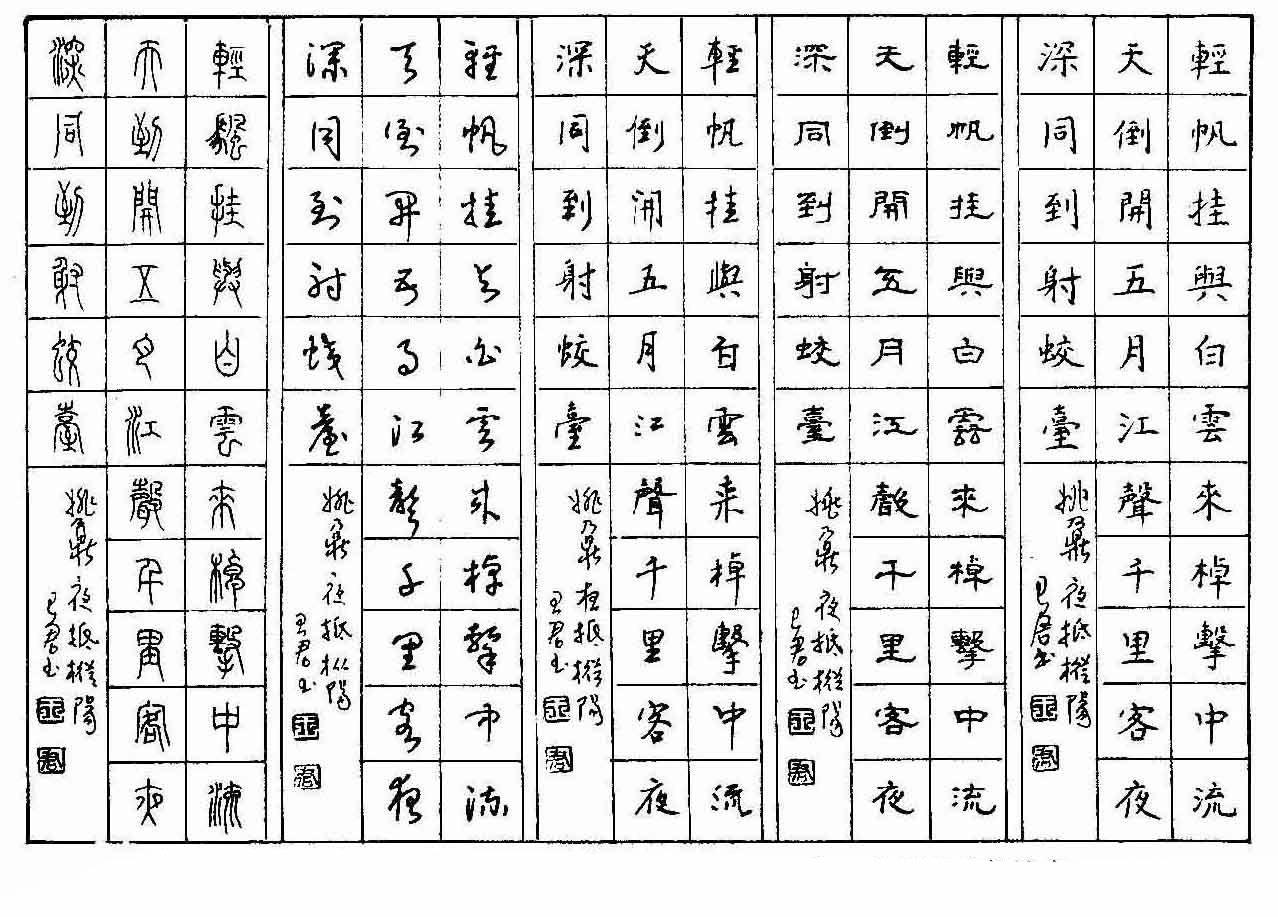 輕帆挂與白雲來棹擊中流
天倒開五月江聲千里客夜
深同到射蛟臺
姚鼐夜抵樅陽
輕帆挂與白雲來棹擊中流
天倒開五月江聲千里客夜
深同到射蛟臺
姚鼐夜抵樅陽
輕帆挂與白雲來棹擊中流
天倒開五月江聲千里客夜
深同到射蛟臺
姚鼐夜抵樅陽
輕帆挂與白雲來棹擊中流
天倒開五月江聲千里客夜
深同到射蛟臺
姚鼐夜抵樅陽
輕颿挂與白雲來棹擊中流
天到開五月江聲千里客夜
深同到射蛟臺
姚鼐夜抵樅陽